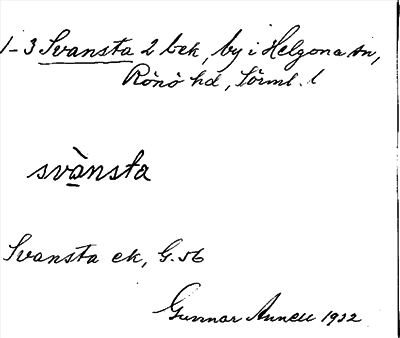 1-3 Svansta 2 bek, by i Helgona sn,
Rönö hd, Sörml. l
svànsta
Svansta ek, G. 56
Gunnar Annell 1932